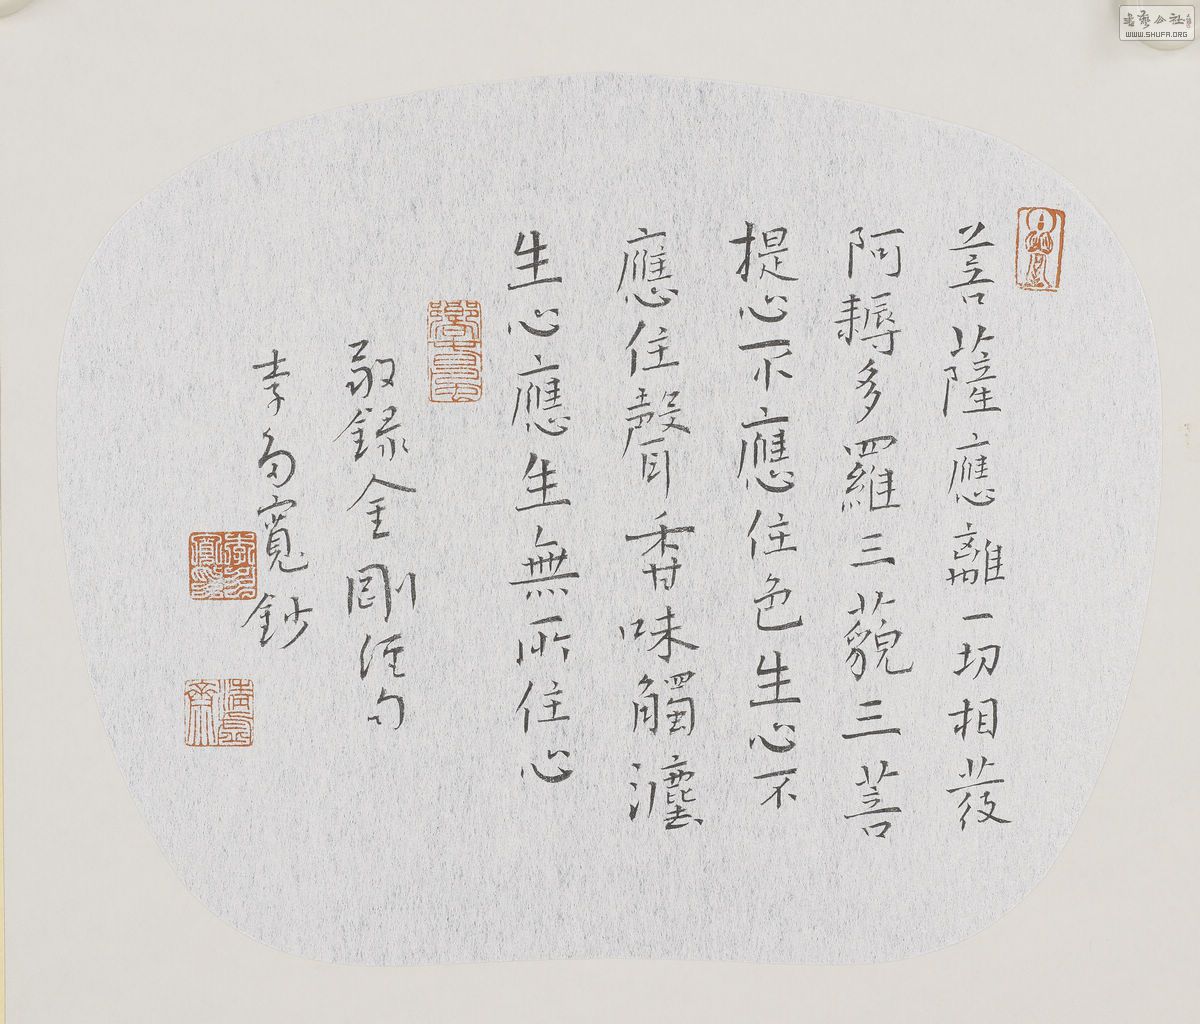 菩薩應離一切相發
阿耨多羅三藐三菩
提心不應住色生心不
應住聲香味觸灋
生心應生無所住心
敬録金剛经句
李寬鈔
書藝公社
WWW.SHUFA.ORG